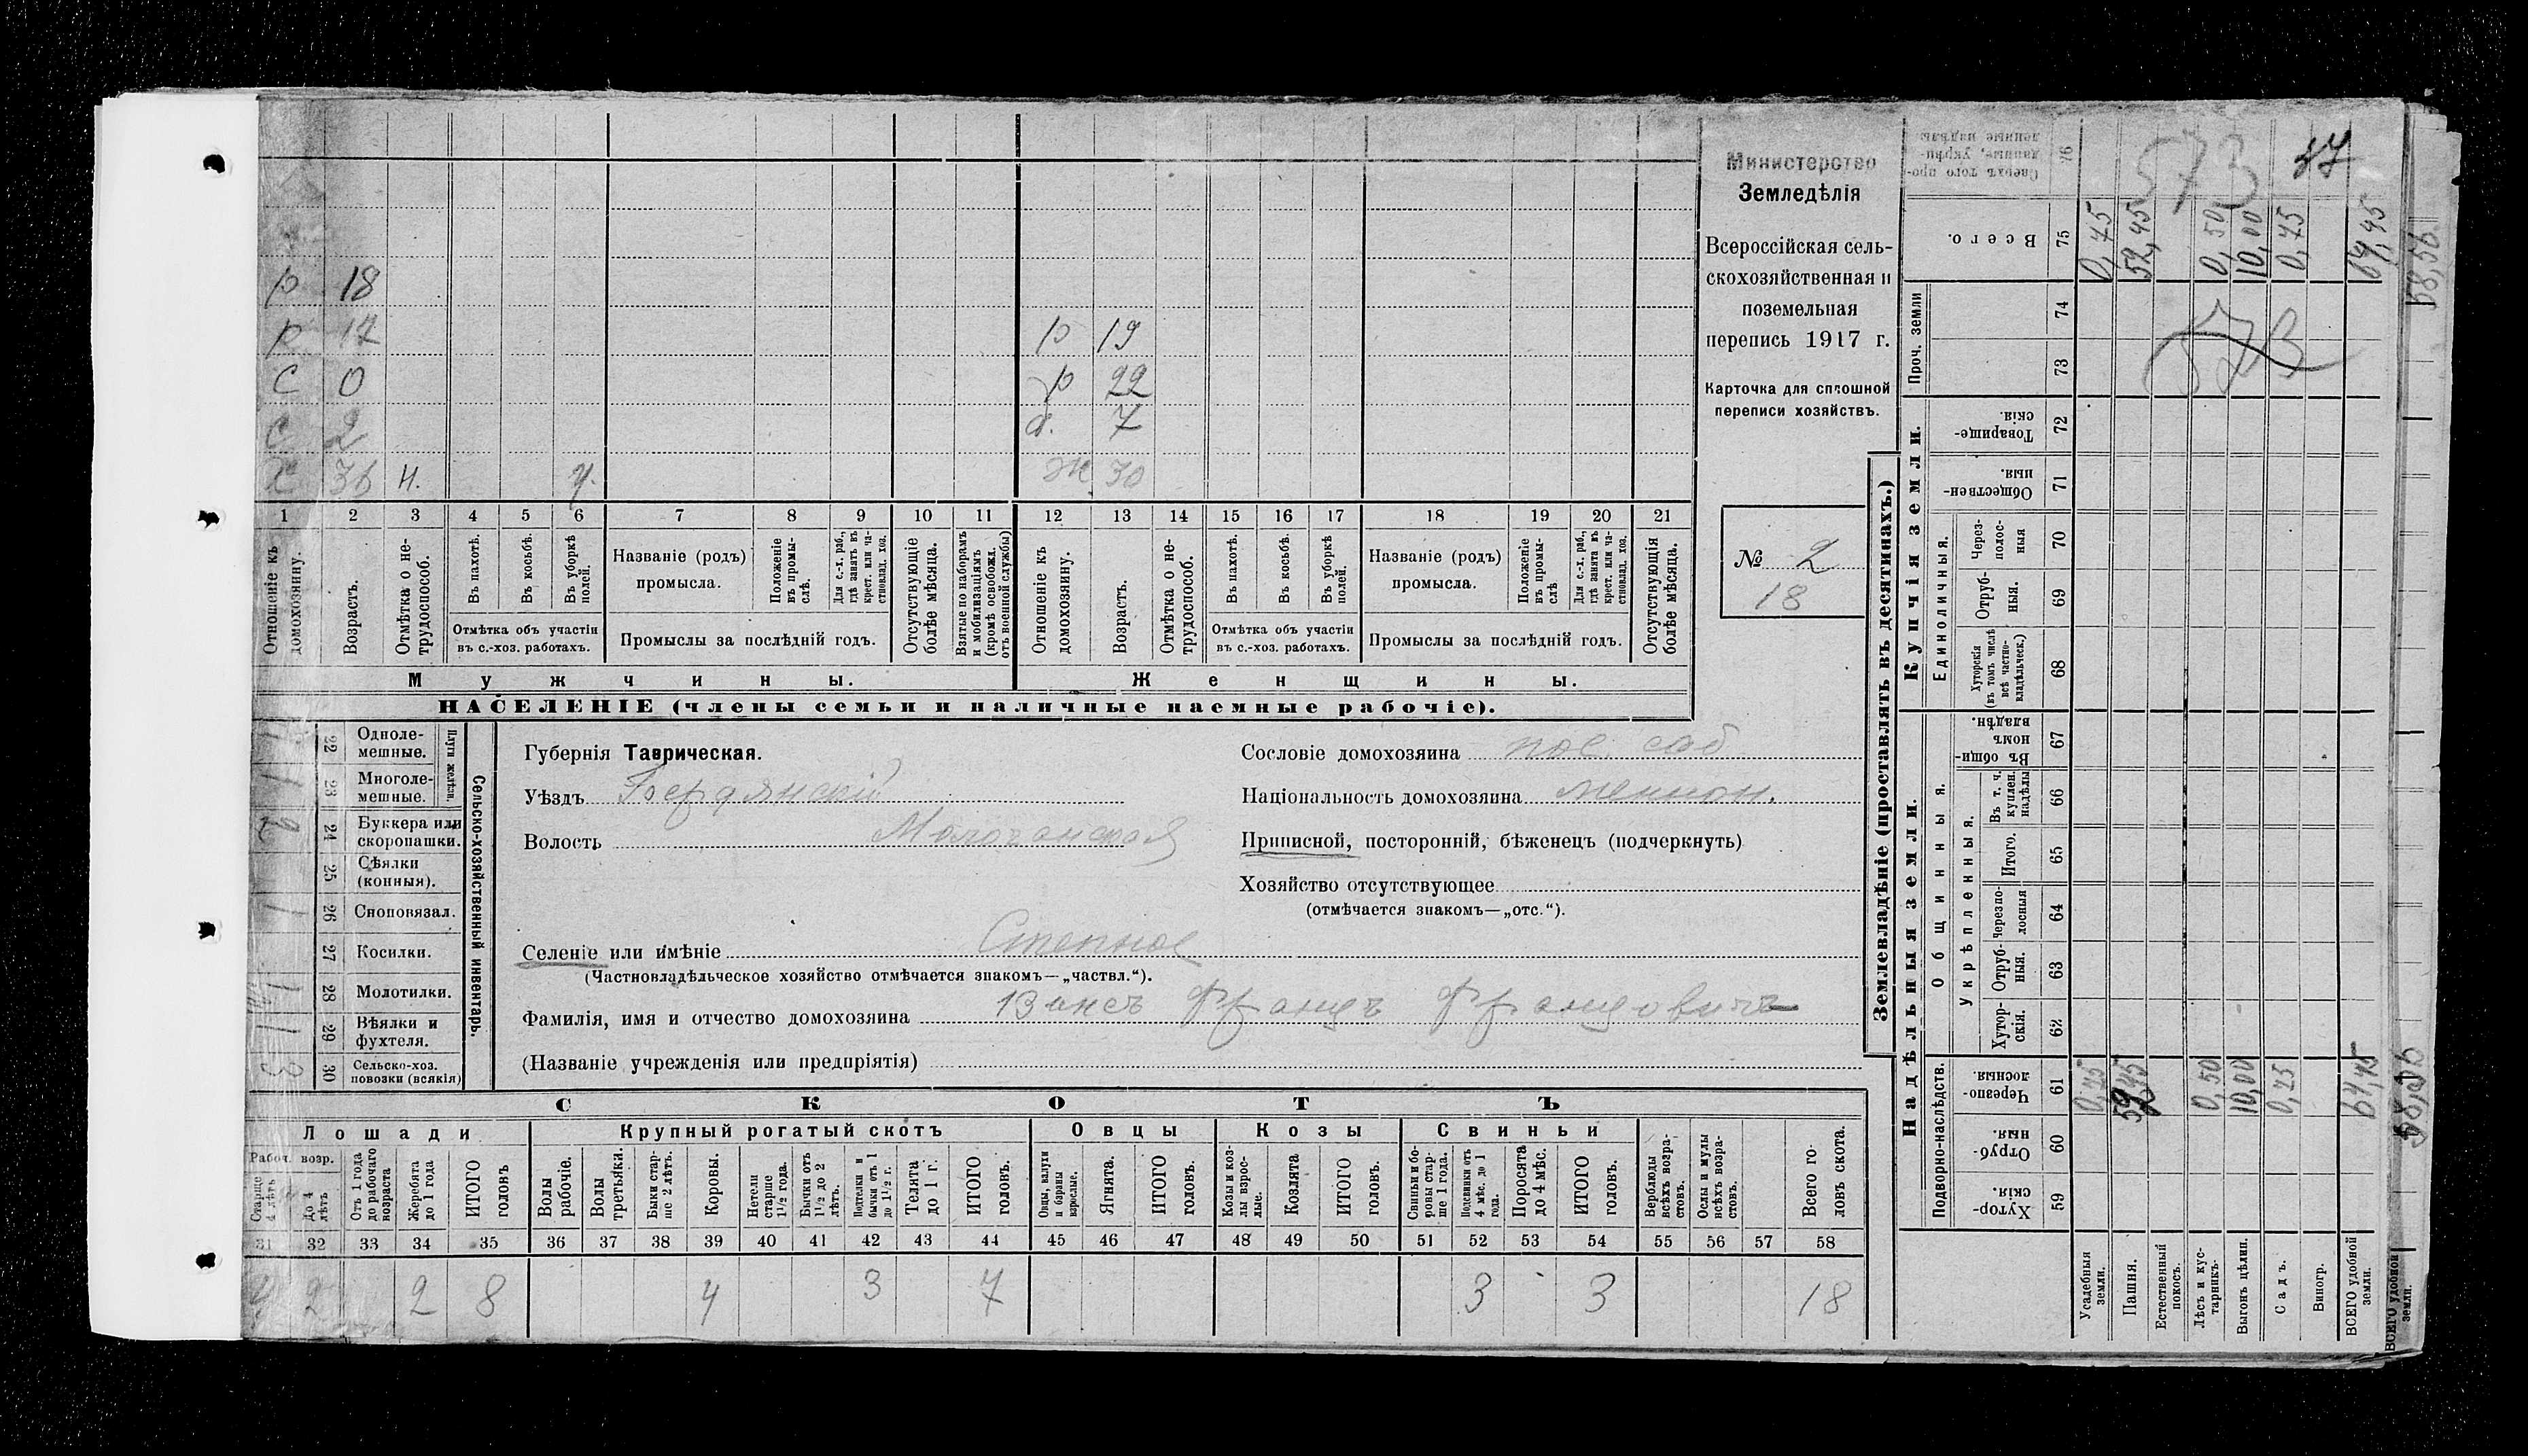 573
47
Министерство
Земледѣлія
Всероссійская сель-
скохозяйственная и
поземельная
перепись 1917 г.
Карточка для сплошной
переписи хозяйствъ.
№ 2
18
р 18
р 17 р 19
с 0 р 22
с 2 д. 7
х 36 н. у. ж 30
1 2 3 4 5 6 7 8 9 10 11 12 13 14 15 16 17 18 19 20 21
Отношеніе къ домохозяину.
Возрастъ.
Отмѣтка о не-трудоспособ.
Въ пахотѣ.
Въ косьбѣ.
Въ уборкѣ полей.
Отмѣтка объ участіи
въ с.-хоз. работахъ.
Названіе (родъ)
промысла.
Положеніе въ промы-слѣ.
Для с.-х. раб., гдѣ занятъ въ крест. или ча-стновлад. хоз.
Промыслы за послѣдній годъ.
Отсутствующіе болѣе мѣсяца.
Взятые по наборамъ и мобилизаціямъ (кромѣ освобожд. отъ военной службы)
Отношеніе къ домохозяину.
Возрастъ.
Отмѣтка о не-трудоспособ.
Въ пахотѣ.
Въ косьбѣ.
Въ уборкѣ полей.
Отмѣтка объ участіи
въ с.-хоз. работахъ.
Названіе (родъ)
промысла.
Положеніе въ промы-слѣ
Для с.-х. раб., гдѣ занята въ крест. или ча-стновлад. хоз.
Промыслы за послѣдній годъ.
Отсутствующія болѣе мѣсяца.
Мужчины. Женщины.
НАСЕЛЕНІЕ (члены семьи и наличные наемные рабочіе).
Сельско-хозяйственный инвентарь.
Плуги желѣзн.
22 Одноле-мешные. 1
23 Многоле-мешные. 1
24 Буккера или скоропашки. 2
25 Сѣялки (конныя).
26 Сноповязал. 1
27 Косилки.
28 Молотилки. 1
29 Вѣялки и фухтеля. 1
30 Сельско-хоз. повозки (всякія) 3
Губернія Таврическая.
Уѣздъ Бердянскій
Волость Молочанская
Селеніе или имѣніе Степное
(Частновладѣльческое хозяйство отмѣчается знакомъ—„частвл.“).
Фамилія, имя и отчество домохозяина Францъ Францовичъ
(Названіе учрежденія или предпріятія)
Сословіе домохозяина пос. соб
Національность домохозяина меннон.
Приписной, посторонній, бѣженецъ (подчеркнуть)
Хозяйство отсутствующее
(отмѣчается знакомъ—„отс.“).
СКОТЪ
Лошади Крупный рогатый скотъ Овцы Козы Свиньи
Рабоч. возр.
Старше 4 лѣтъ
До 4 лѣтъ
Отъ 1 года до рабочаго возраста
Жеребята до 1 года
ИТОГО головъ
Волы рабочіе.
Волы третьяки.
Быки стар-ше 2 лѣтъ.
Коровы.
Нетели старше 1½ года.
Бычки отъ 1½ до 2 лѣтъ.
Подтелки и бычки отъ 1 до 1½ г.
Телята до 1 г.
ИТОГО головъ.
Овцы, валухи и бараны взрослые.
Ягнята.
ИТОГО головъ.
Козы и коз-лы взрос-лые.
Козлята
ИТОГО головъ.
Свиньи и бо-ровы стар-ше 1 года.
Подсвинки отъ 4 мѣс. до 1 года.
Поросята до 4 мѣс.
ИТОГО головъ.
Верблюды всѣхъ возра-стовъ.
Ослы и мулы всѣхъ возра-стовъ.
Всего го-ловъ скота.
31 32 33 34 35 36 37 38 39 40 41 42 43 44 45 46 47 48 49 50 51 52 53 54 55 56 57 58
2 2 8 4 3 7 3 3 18
Землевладѣніе (проставлять въ десятинахъ.)
Надѣльныя земли. Купчія земли.
Подворно-наслѣдств.
Общинныя.
Укрѣпленныя.
Единоличныя.
Проч. земли
59 Хутор-скія.
60 Отруб-ныя.
61 Черезпо-лосныя.
62 Хутор-скія.
63 Отруб-ныя.
64 Черезпо-лосныя
65 Итого.
66 Въ т. ч. куплен. надѣлы
67 Въ общин-номъ владѣн.
68 Хуторскія (въ томъ числѣ всѣ частно-владѣльческ.)
69 Отруб-ныя.
70 Через-полос-ныя
71 Обществен-ныя.
72 Товарище-скія.
73 74
75 Всего.
76 Сверхъ того про-данные, укрѣп-ленные надѣлы
Усадебныя земли. 0,75 0,75
Пашня. 52,45
Естественный покосъ.
Лѣсъ и кус-тарникъ. 0,50 0,50
Выгонъ цѣлин. 10,00 10,00
Садъ. 0,75
Виногр.
ВСЕГО удобной земли. 64,45 64,45
573
ВСЕГО удобной земли. 58,56 58,56